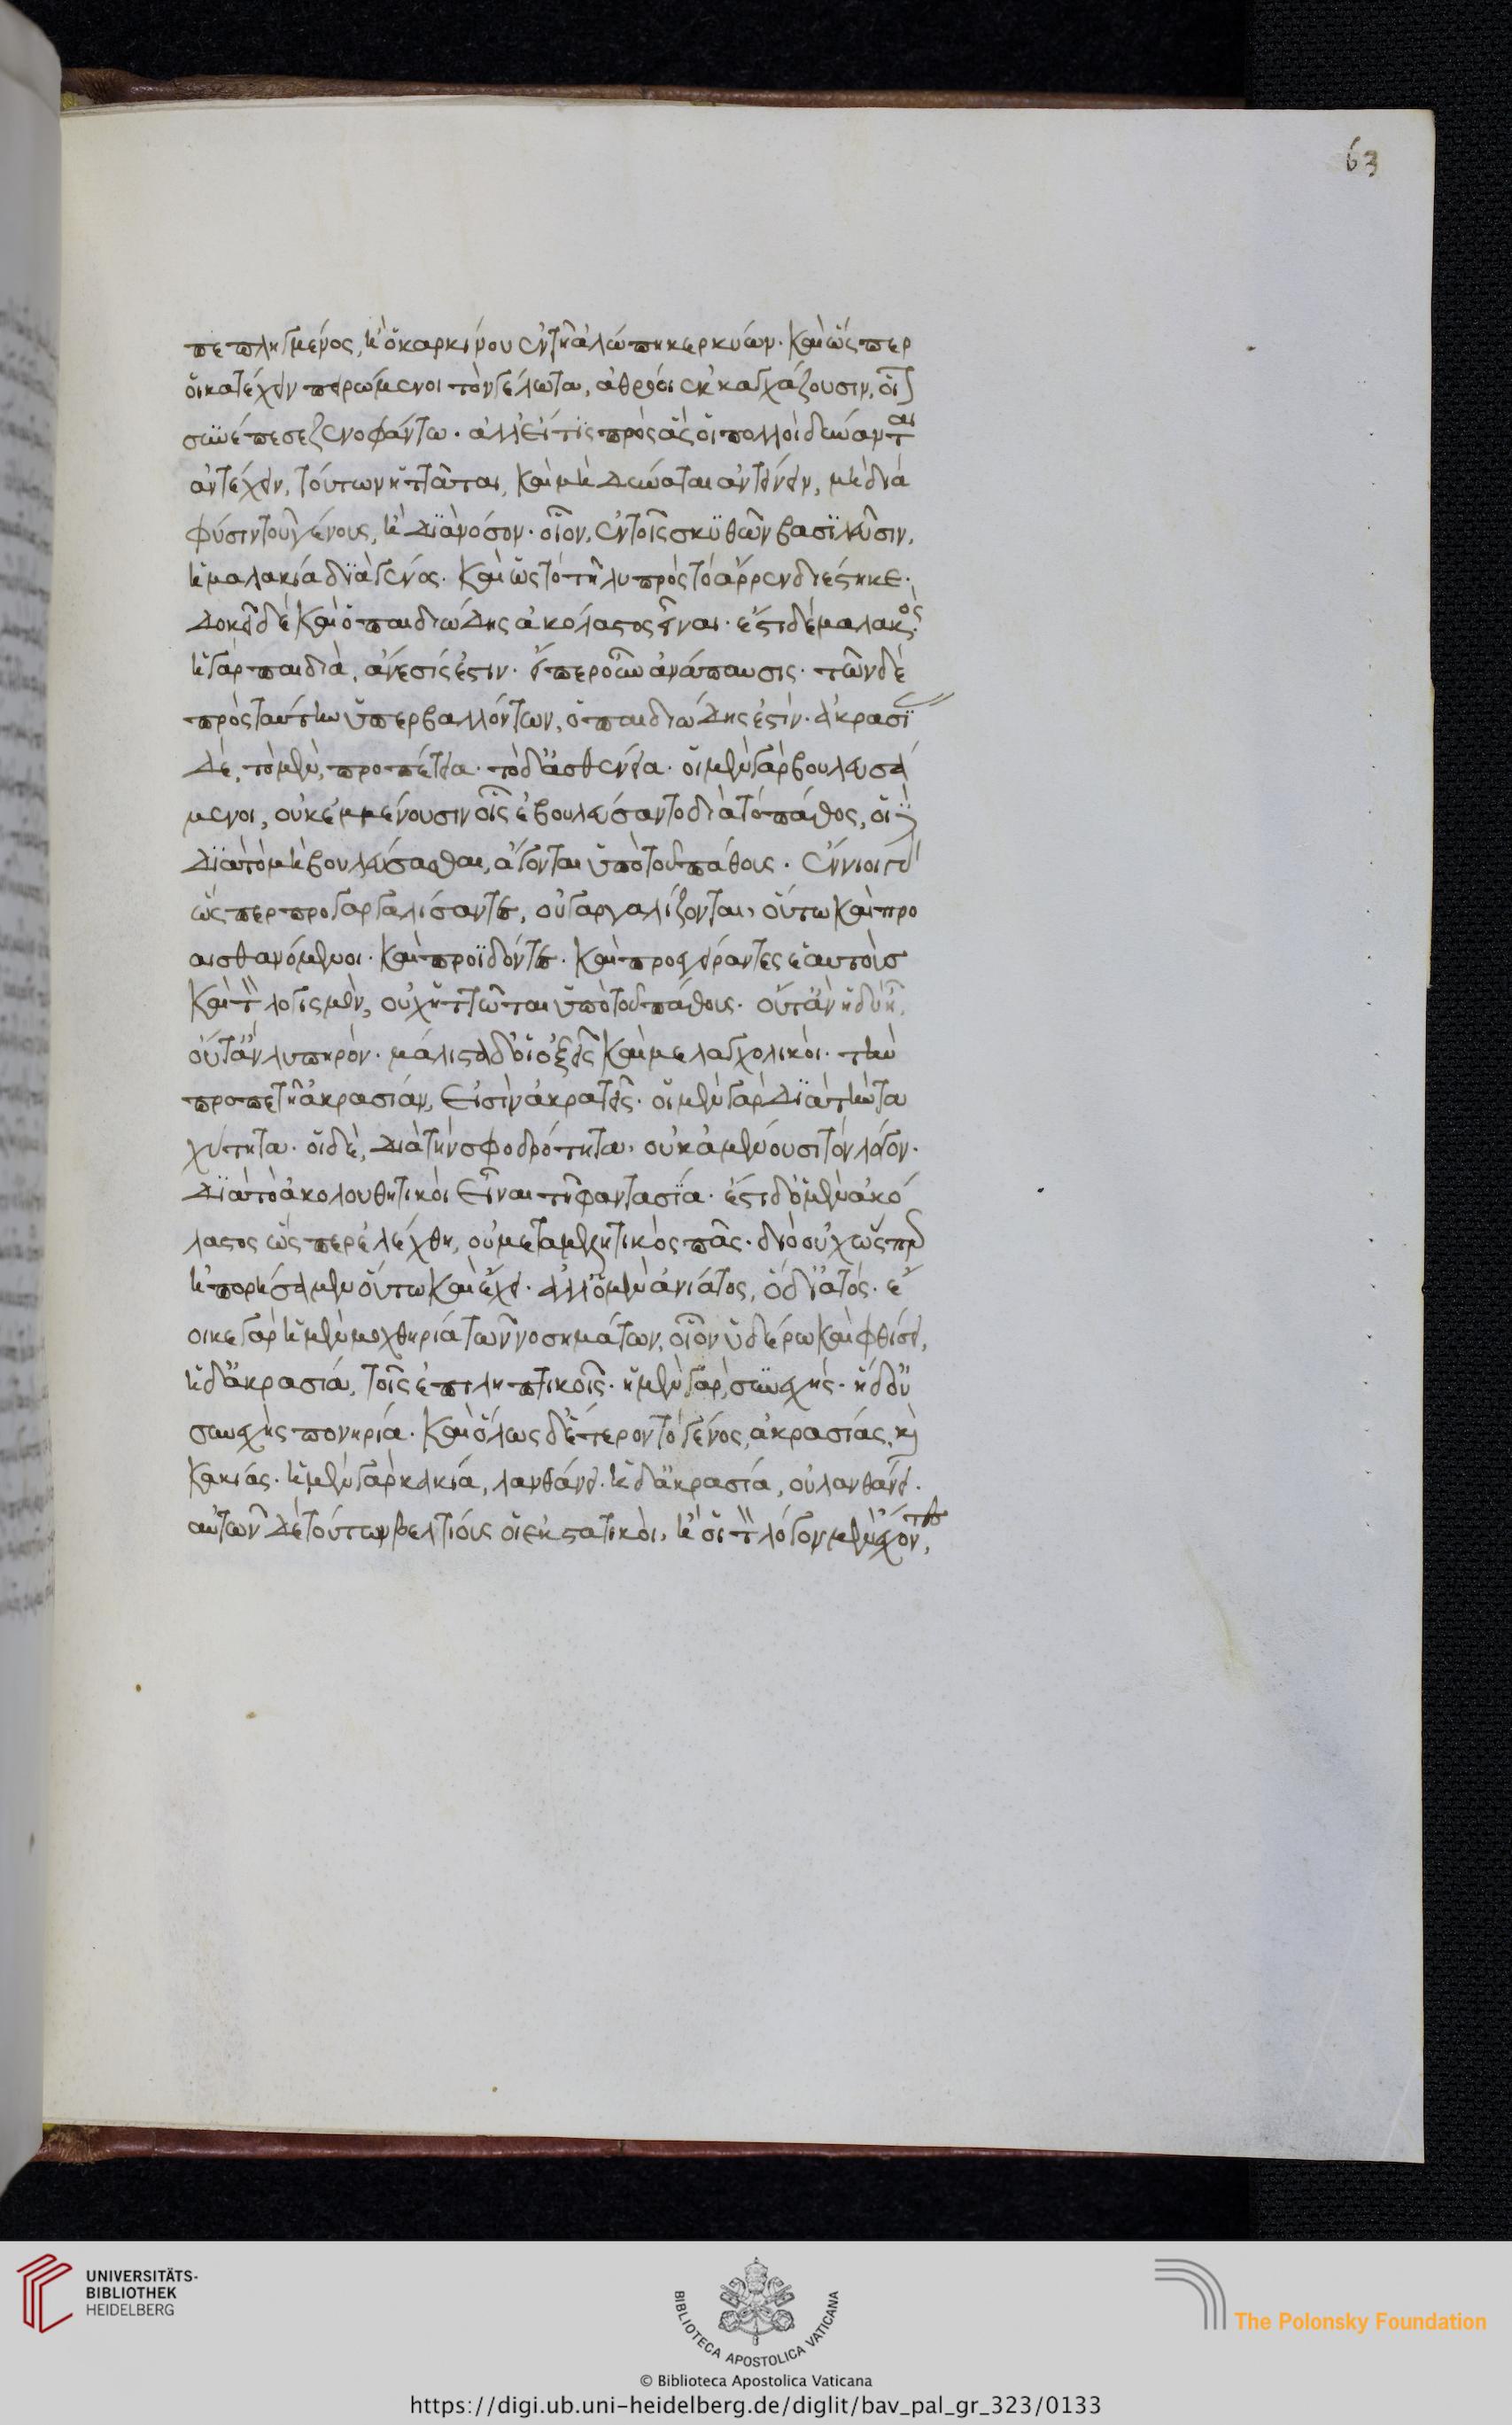 63
πεπληγμένος, ἢ ὁ καρκίνου ἐν τῇ ἀλώπῃ κερκυών. καὶ ὥσπερ
οἱ κατέχειν πειρώμενοι τὸν γέλωτα, ἀθρόοι ἐκκαγχάζουσιν, οἷ
συνέπεσε ξενοφάντω. ἀλλ' εἴ τις πρὸς ἃς οἱ πολλοὶ δύναντ
αι
ἀντέχειν, τούτων ἡττᾶται, καὶ μὴ δύναται ἀντιτείνειν, μὴ διὰ
φύσιν τοῦ γένους, ἢ διὰ νόσον. οἷον, ἐν τοῖς σκυθῶν βασιλεῦσιν,
ἡ μαλακία διὰ γένος. καὶ ὡς τὸ θῆλυ πρὸς τὸ ἄρρεν διέστηκε.
δοκεῖ δὲ καὶ ὁ παιδιώδης ἀκόλαστος εἶναι. ἔστι δὲ μαλακός.
ἡ γὰρ παιδιὰ, ἄνεσίς ἐστιν. εἴπερ οὖν ἀνάπαυσις. τῶν δὲ
πρὸς ταύτην ὑπερβαλλόντων, ὁ παιδιώδης ἐστίν. ἀκρασί
δὲ, τὸ μὲν, προπέτεια. τὸ δ' ἀσθένεια. οἱ μὲν γὰρ βουλευσά
μενοι, οὐκ ἐμμένουσιν οἷς ἐβουλεύσαντο διὰ τὸ πάθος, οἱ δὲ
διὰ τὸ μὴ βουλεύσασθαι, ἄγονται ὑπὸ τοῦ πάθους. ἔνιοι γὰρ
ὥσπερ προγαργαλίσαντες, οὐ γαργαλίζονται, οὕτω καὶ προ
αισθανόμενοι. καὶ προϊδόντες. καὶ προεγείραντες ἑαυτοὺς
καὶ τὸν λογισμὸν, οὐχ ἡττῶνται ὑπὸ τοῦ πάθους. οὔτ' ἂν ἡδὺ ᾖ,
οὔτ' ἂν λυπηρόν. μάλιστα δ' οἱ ὀξεῖς καὶ μελαγχολικοὶ. τὴν
προπετῆ ἀκρασίαν, εἰσὶν ἀκρατεῖς. οἱ μὲν γὰρ διὰ τὴν τα
χυτῆτα. οἱ δὲ, διὰ τὴν σφοδρότητα, οὐκ ἀμένουσι τὸν λόγον.
διὰ τὸ ἀκολουθητικοὶ εἶναι τῇ φαντασία. ἔστι δ' ὁ μὲν ἀκό
λαστος ὥσπερ ἐλέχθη, οὐ μεταμελητικός πᾶς. διὸ οὐχ ὥσπερ
ἠπορήσαμεν οὕτω καὶ ἔχει. ἀλλ' ὁ μὲν ἀνίατος, ὁ δ' ἰατός. ἔ
οικε γὰρ ἡ μὲν μοχθηρία τῶν νοσημάτων, οἷον ὑδέρω καὶ φθίσει,
ἡ δ' ἀκρασία, τοῖς ἐπιληπτικοῖς. ἡ μὲν γὰρ, συνεχής. ἡ δ' οὐ
συνεχὴς πονηρία. καὶ ὅλως δ' ἕτερον τὸ γένος, ἀκρασίας, καὶ
κακίας. ἡ μὲν γὰρ κακία, λανθάνει. ἡ δ' ἀκρασία, οὐ λανθάνει.
αὐτῶν δὲ τούτων βελτίους οἱ ἐκστατικοὶ, ἢ οἱ τὸν λόγον μὲν ἔχοντες,
UNIVERSITÄTS-
BIBLIOTHEK
HEIDELBERG
BIBLIOTECA APOSTOLICA VATICANA
The Polonsky Foundation
© Biblioteca Apostolica Vaticana
https://digi.ub.uni-heidelberg.de/diglit/bav_pal_gr_323/0133